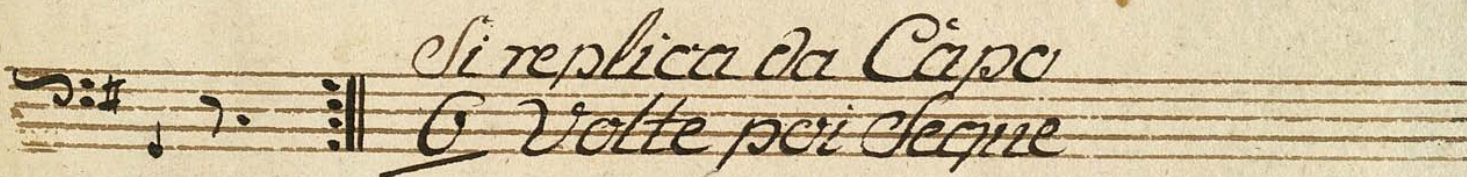 Si replica da Càpo
6 Volte poi Segue